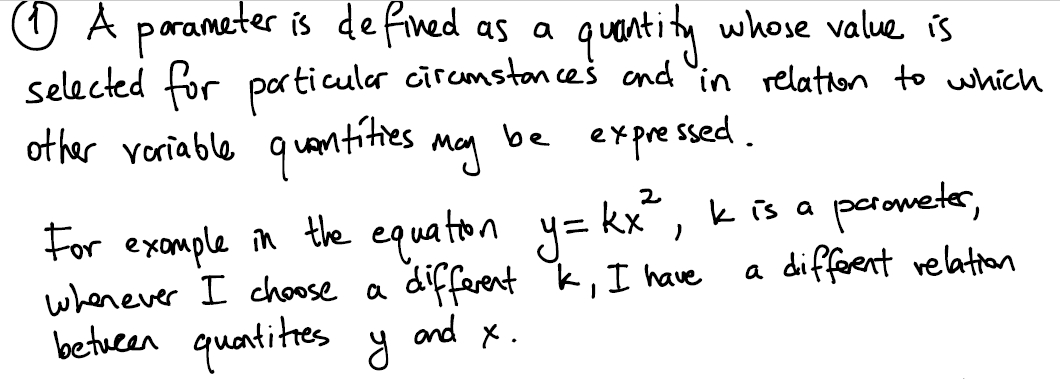 ① A parameter is defined as a quantity whose value is
selected for particular circumstances and in relation to which
other variable quantities may be expressed.
For example in the equation y = kx², k is a parameter,
whenever I choose a different k, I have a different relation
between quantities y and x.